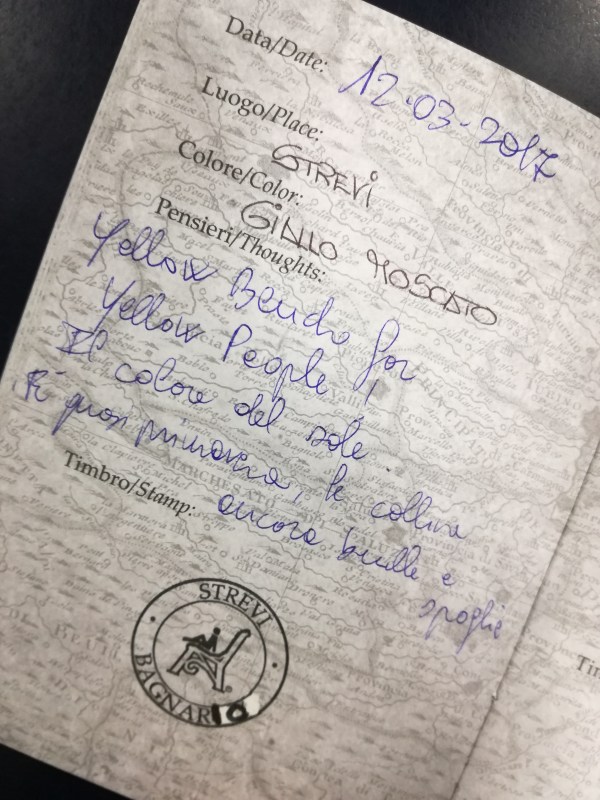 Data/Date: 12-03-2017
Luogo/Place: STREVI
Colore/Color: GIALLO MOSCATO
Pensieri/Thoughts:
Yellow for
Yellow People!
Il colore del sole.
È quasi primavera, le colline
ancora brulle e
spoglie
Timbro/Stamp:
STREVI
BAGNARIO